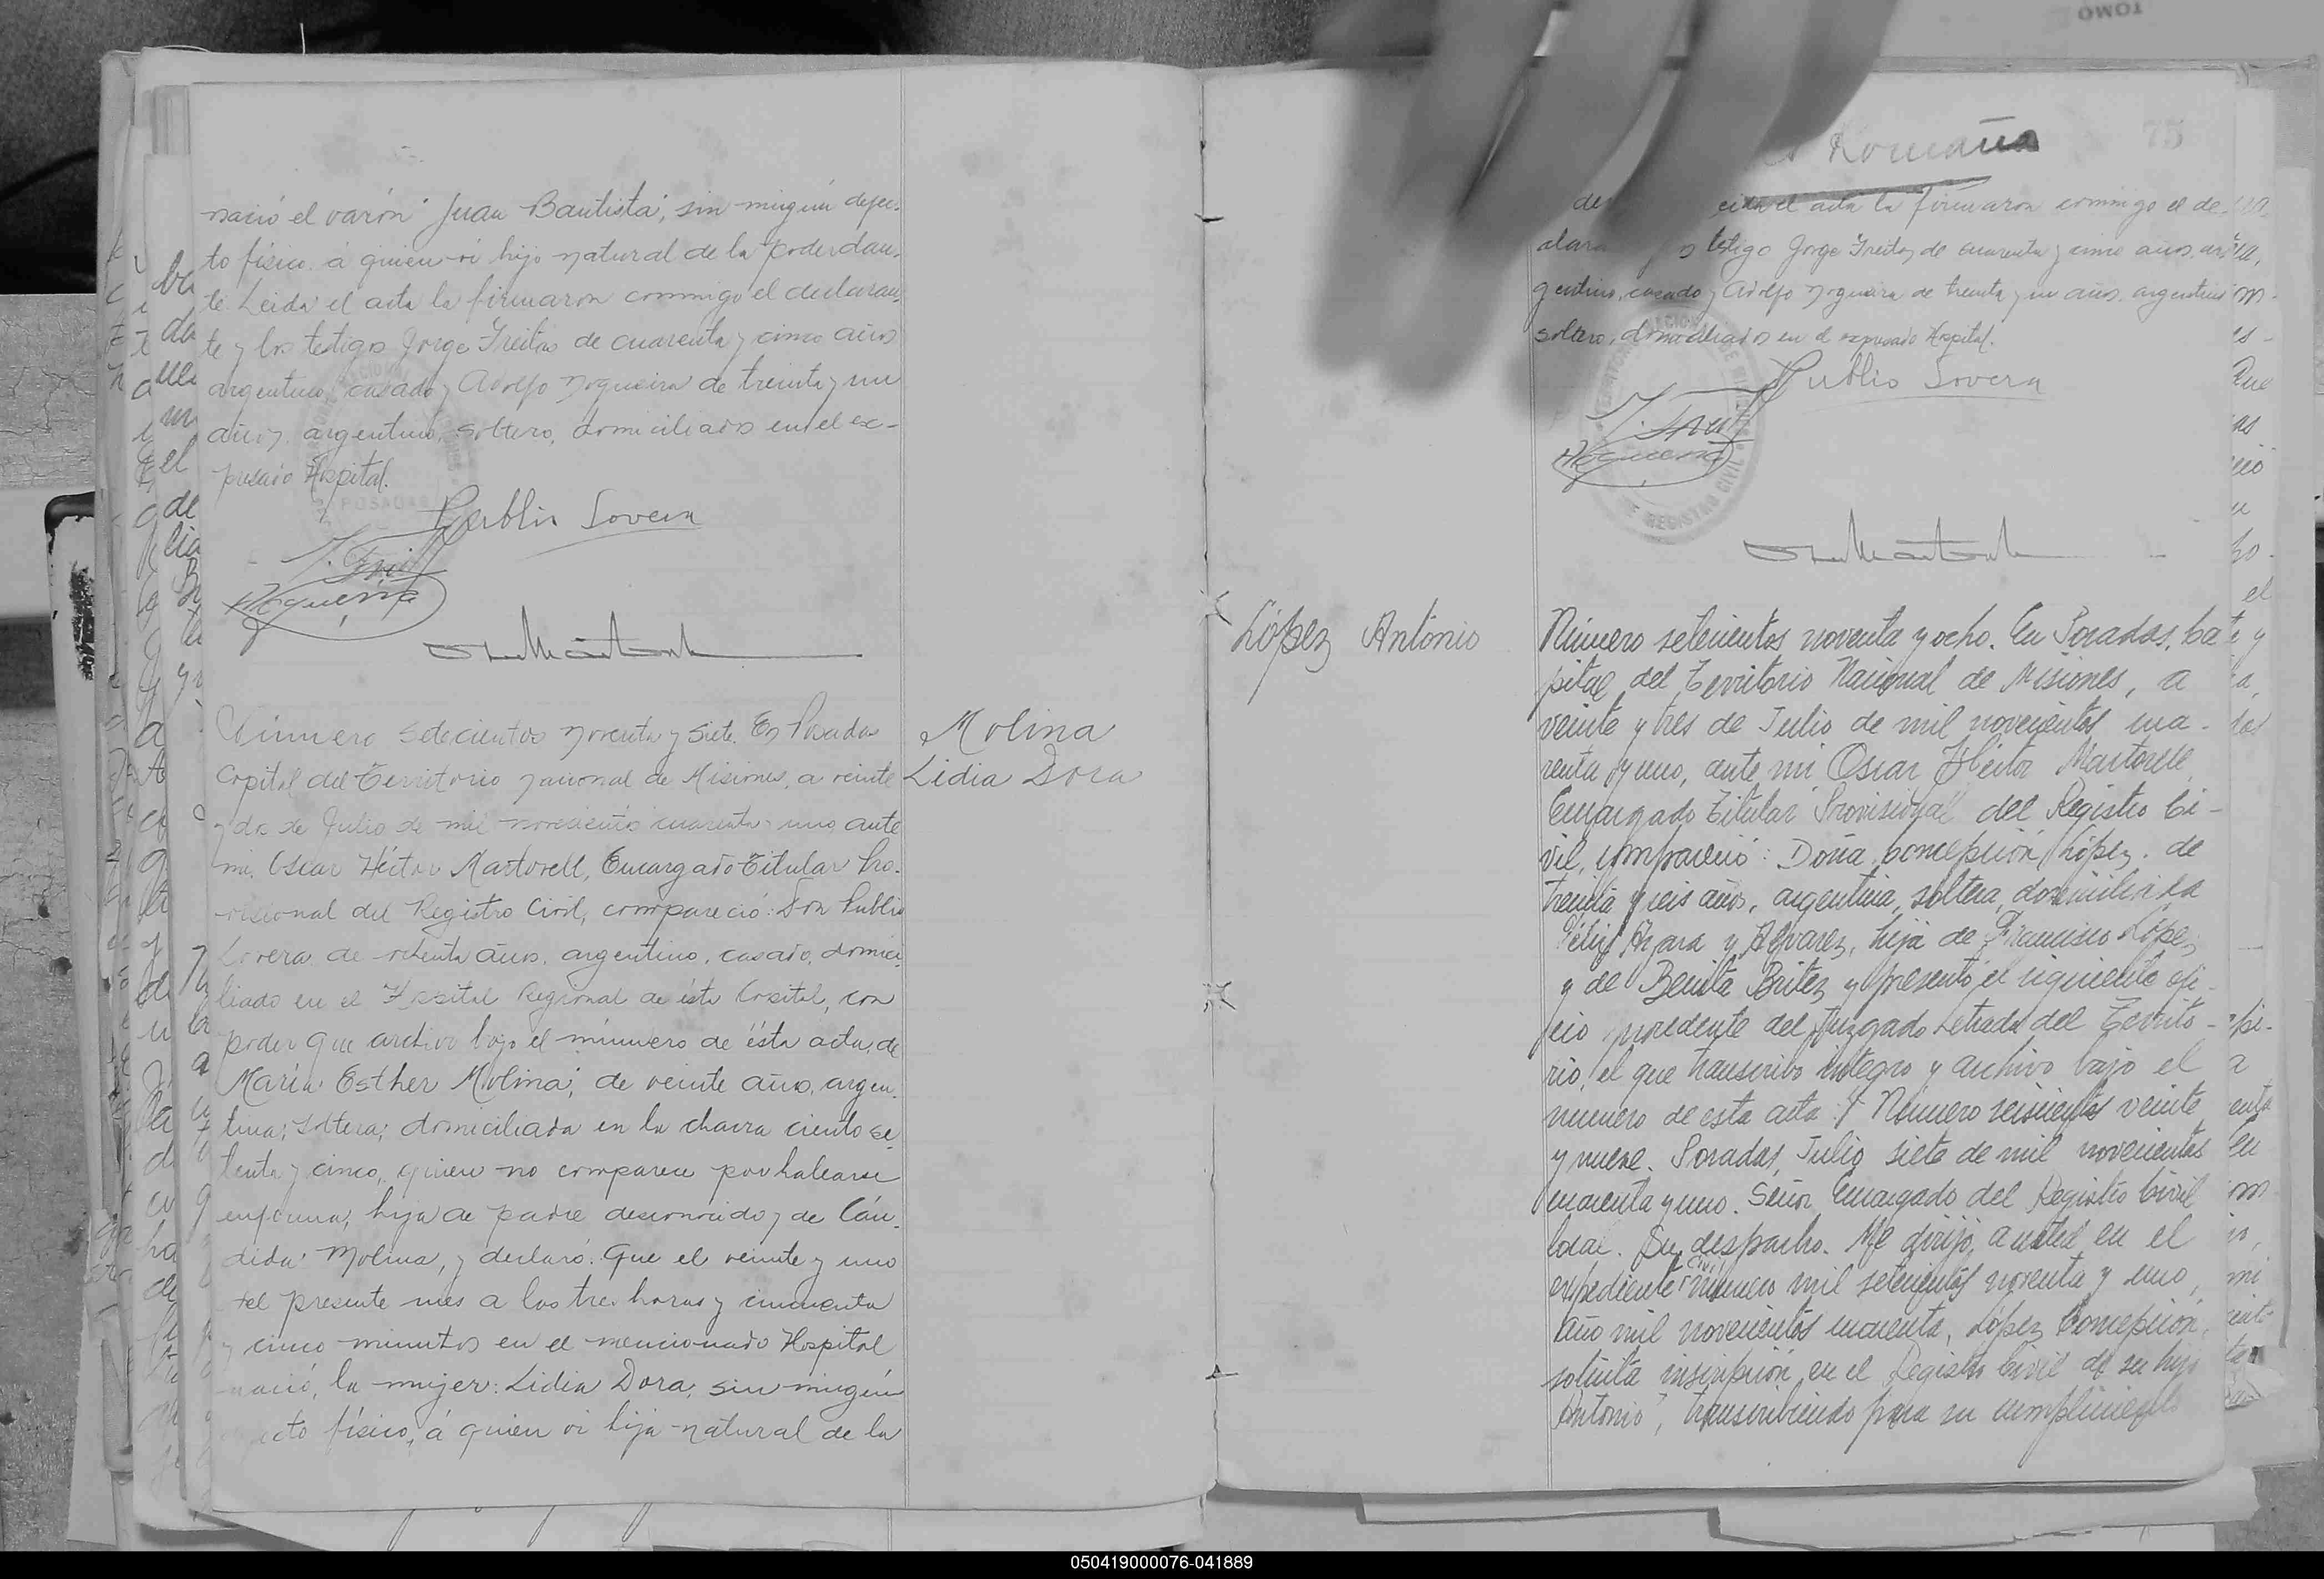 nació el varón "Juan Bautista", sin ningún defec-
to físico, á quien ví hijo natural de la poderdan-
te. Leida el acta la firmaron conmigo el declaran-
te y los testigos Jorge Freitas de cuarenta y cinco años
argentino, casado y Adolfo Nogueira de treinta y un
años, argentino, soltero, domiciliados en el ex-
presado Hospital.
Publio Lovera
Número setecientos noventa y siete. En Posadas
Capital del Territorio Nacional de Misiones, a veinte
y dos de Julio de mil novecientos cuarenta y uno, ante
mi, Oscar Héctor Martorell, Encargado Titular Pro-
visional del Registro Civil, compareció: Don Publio
Lovera de ochenta años, argentino, casado, domici-
liado en el Hospital Regional de ésta Capital, con
poder que archivo bajo el número de ésta acta, de
María Esther Molina; de veinte años, argen-
tina; soltera; domiciliada en la chacra ciento se-
tenta y cinco, quien no comparece por hallarse
enferma; hija de padre desconocido y de Cán-
dida Molina, y declaró: Que el veinte y uno
del presente mes a las tres horas y cincuenta
y cinco minutos en el mencionado Hospital
nació, la mujer: Lidia Dora, sin ningún
físico, á quien ví hija natural de la
Molina
Lidia Dora
TOMO
Romaña
75
el acta la firmaron conmigo el de-
testigo Jorge Freitas de cuarenta y cinco años, ar-
gentino, casado y Adolfo Nogueira de treinta y un años, argentino
soltero, domiciliados en el expresado Hospital.
Publio Lovera
López Antonio
Número setecientos noventa y ocho. En Posadas, Ca-
pital del Territorio Nacional de Misiones, a
veinte y tres de Julio de mil novecientos cua-
renta y uno, ante mi Oscar Héctor Martorell,
Encargado Titular Provisional del Registro Ci-
vil, compareció: Doña Concepción López, de
treinta y seis años, argentina, soltera, domiciliada
Félix Azara y Alvarez, hija de Francisco López
y de Benita Britez y presentó el siguiente ofi-
cio procedente del Juzgado Letrado del Territo-
rio, el que transcribo integro y archivo bajo el
numero de esta acta: Numero seiscientos veinte
y nueve. Posadas, Julio siete de mil novecientos
cuarenta y uno. Señor Encargado del Registro Civil
local. Su despacho. Me dirijo a usted en el
expediente civil numero mil setecientos noventa y uno,
año mil novecientos cuarenta, López Concepción,
solicita inscripción en el Registro Civil de su hijo
Antonio", transcribiendo para su cumplimiento
050419000076-041889